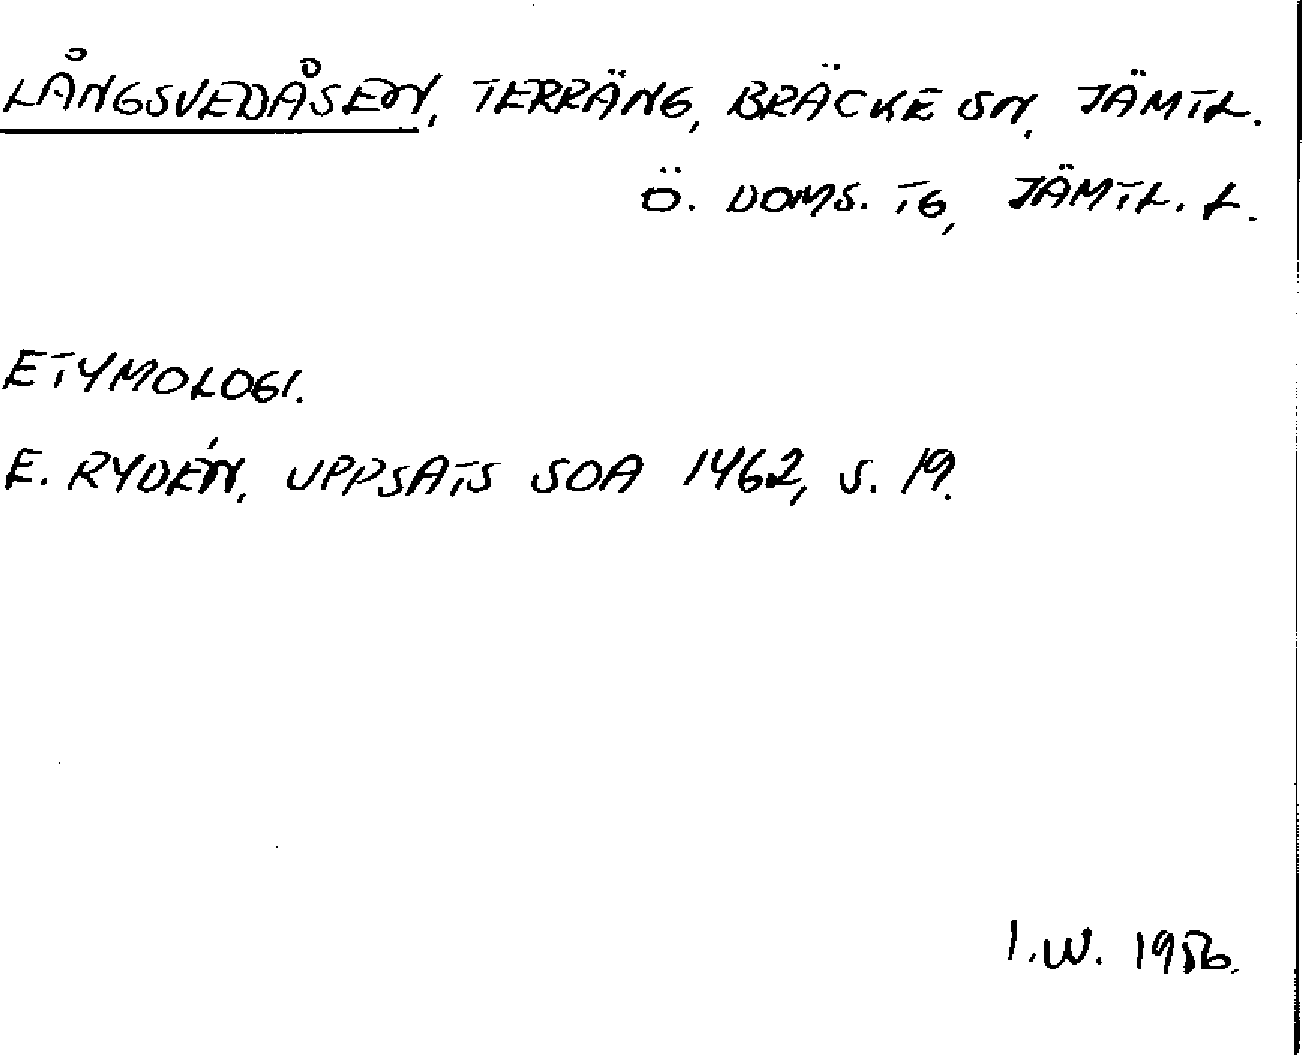 LÅNGSVEDÅSEN, TERRÄNG, BRÄCKE SN, JÄMTL.
Ö. DOMS. TG, JÄMTL. L.
ETYMOLOGI.
E. RYDÉN, UPPSATS SOA 1462, S. 19.
I.W. 1956.